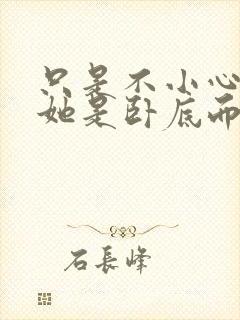 只是不小心
她是卧底而
石長峰